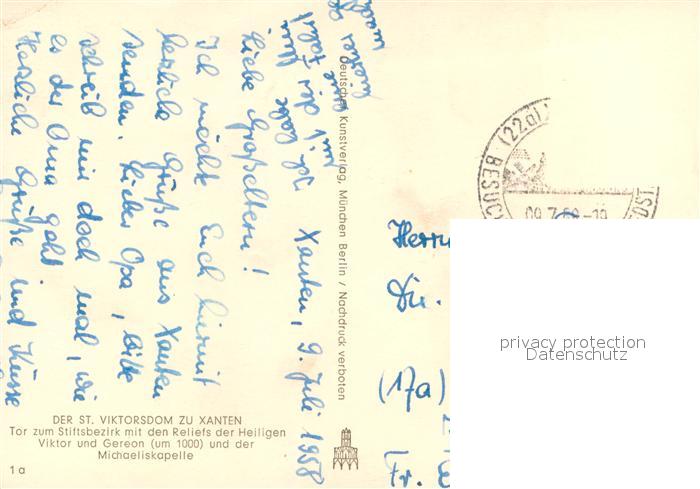 Xanten, 9. Juli 1958
Liebe Großeltern!
Ich möchte Euch hiermit
herzliche Grüße aus Xanten
senden. Lieber Opa, bitte
schreib mir doch mal, wie
es der Oma geht.
Herzliche Grüße und Küsse
DER ST. VIKTORSDOM ZU XANTEN
Tor zum Stiftsbezirk mit den Reliefs der Heiligen
Viktor und Gereon (um 1000) und der
Michaeliskapelle
1 a
Deutscher Kunstverlag, München Berlin / Nachdruck verboten
(22a)
BESUC
OST
09.7.58-19
Herrn
Die.
(17a)
Fr.
privacy protection
Datenschutz